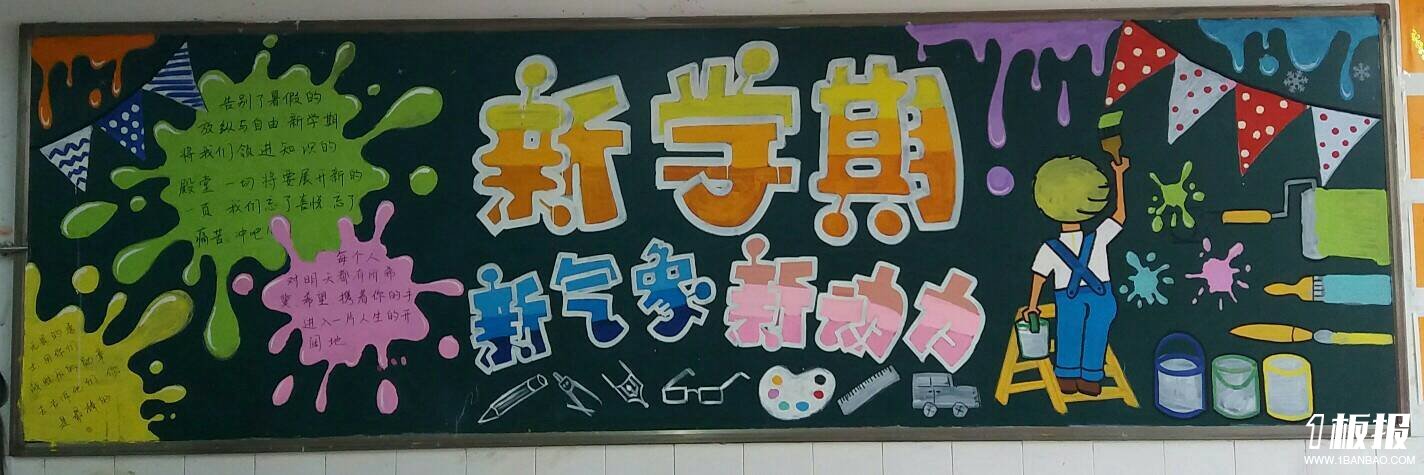 新学期
新气象 新动力
告别了暑假的
放纵与自由 新学期
将我们领进知识的
殿堂 一切将要展开新的
一页 我们忘了喜悦 忘了
痛苦 冲吧!
每个人
对明天都有所希
望 希望 携着你的手
进入一片人生的开
阔地
是最棒的。
1板报
WWW.1BANBAO.COM